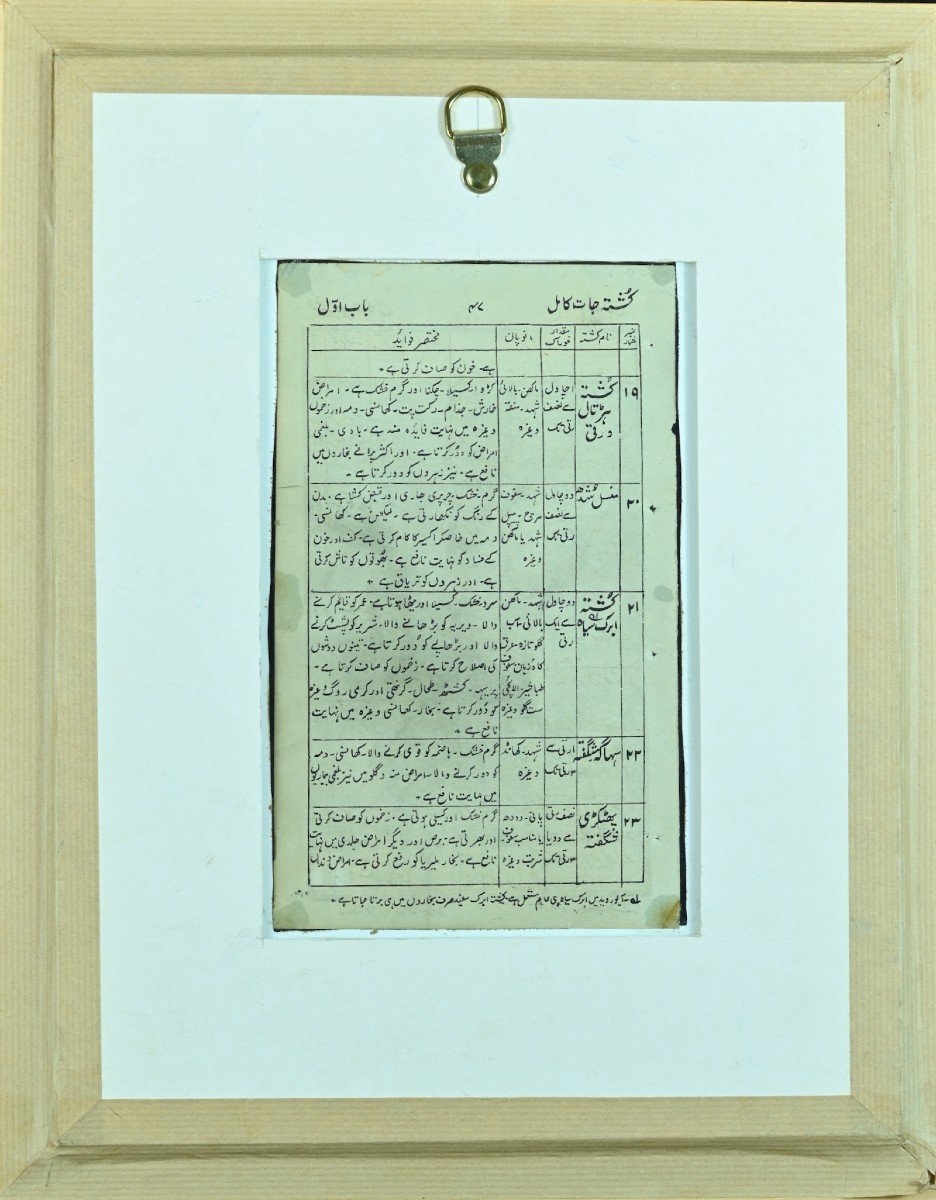 کُشتہ جات کامل ۴۷ باب اوّل
نمبر شمار نام کشتہ مقدار خوراک انوپان مختصر فوائد
ہے۔ خون کو صاف کرتی ہے۔
۱۹ کُشتہ ہڑتال ورقی
۱ چاول سے نصف رتی تک
مکھن۔ بالائی
شہد۔ منقہ
وغیرہ
کڑوا۔ کسیلا۔ چکنا اور گرم خشک ہے۔ امراض
خارش۔ جذام۔ رکت پت۔ کھانسی۔ دمہ اور زخموں
وغیرہ میں نہایت فائدہ مند ہے۔ بادی۔ بلغمی
امراض کو دُور کرتا ہے۔ اور اکثر پرانے بخاروں میں
نافع ہے۔ نیز زہروں کو دور کرتا ہے۔
۲۰ منسل شدھ
دو چاول
سے نصف
رتی تک
شہد۔ سفوف
مرچ و پیپل
شہد یا مکھن
وغیرہ
گرم۔ خشک۔ چرپری بھاری اور قبض کشا ہے۔ بدن
کے رنگ کو نکھارتی ہے۔ نمکین ہے۔ کھانسی۔
دمہ میں خاصکر اکسیر کا کام کرتی ہے۔ کف اور خون
کے فساد کو نہایت نافع ہے۔ بھوتوں کو ناش کرتی
ہے۔ اور زہروں کو تریاق ہے۔
۲۱ کُشتہ ابرک سیاہ
دو چاول
سے ایک
رتی
شہد۔ مکھن
بالائی۔ آب
گلو تازہ عرق
گاؤ زبان سفوف
طباشیر۔ الائچی
ست گلو وغیرہ
سرد خشک۔ کسیلا اور میٹھا ہوتا ہے۔ عمر کو قائم کرنے
والا۔ ویریہ کو بڑھانے والا۔ شریر کو پشٹ کرنے
والا اور بڑھاپے کو دُور کرتا ہے۔ تینوں دوشوں
کی اصلاح کرتا ہے۔ زخموں کو صاف کرتا ہے۔
پریہہ۔ کشٹھ۔ طحال۔ گرنتھی اور کرمی روگ وغیرہ
کو دُور کرتا ہے۔ بخار۔ کھانسی وغیرہ میں نہایت
نافع ہے۔
۲۲ سہاگہ شگفتہ
۱ رتی سے
۳ رتی تک
شہد۔ کھانڈ
وغیرہ
گرم خشک۔ ہاضمہ کو قوی کرنے والا۔ کھانسی۔ دمہ
کو دور کرنے والا۔ امراض منہ و گلو میں نیز بلغمی بیماریوں
میں نہایت نافع ہے۔
۲۳ پھٹکڑی شگفتہ
نصف رتی
سے دو یا
۳ رتی تک
پانی۔ دودھ
یا مناسب سفوف
شربت وغیرہ
گرم خشک اور کسیلی ہوتی ہے۔ زخموں کو صاف کرتی
اور بھرتی ہے۔ برص اور دیگر امراض جلدی میں نہایت
نافع ہے۔ بخار ملیریا کو رفع کرتی ہے۔ امراض دندان
لہ۔ آیورویدمیں ابرک سیاہ ہی عام مستعمل ہے۔ کشتہ ابرک سفید صرف بخاروں میں ہی برتا جاتا ہے۔